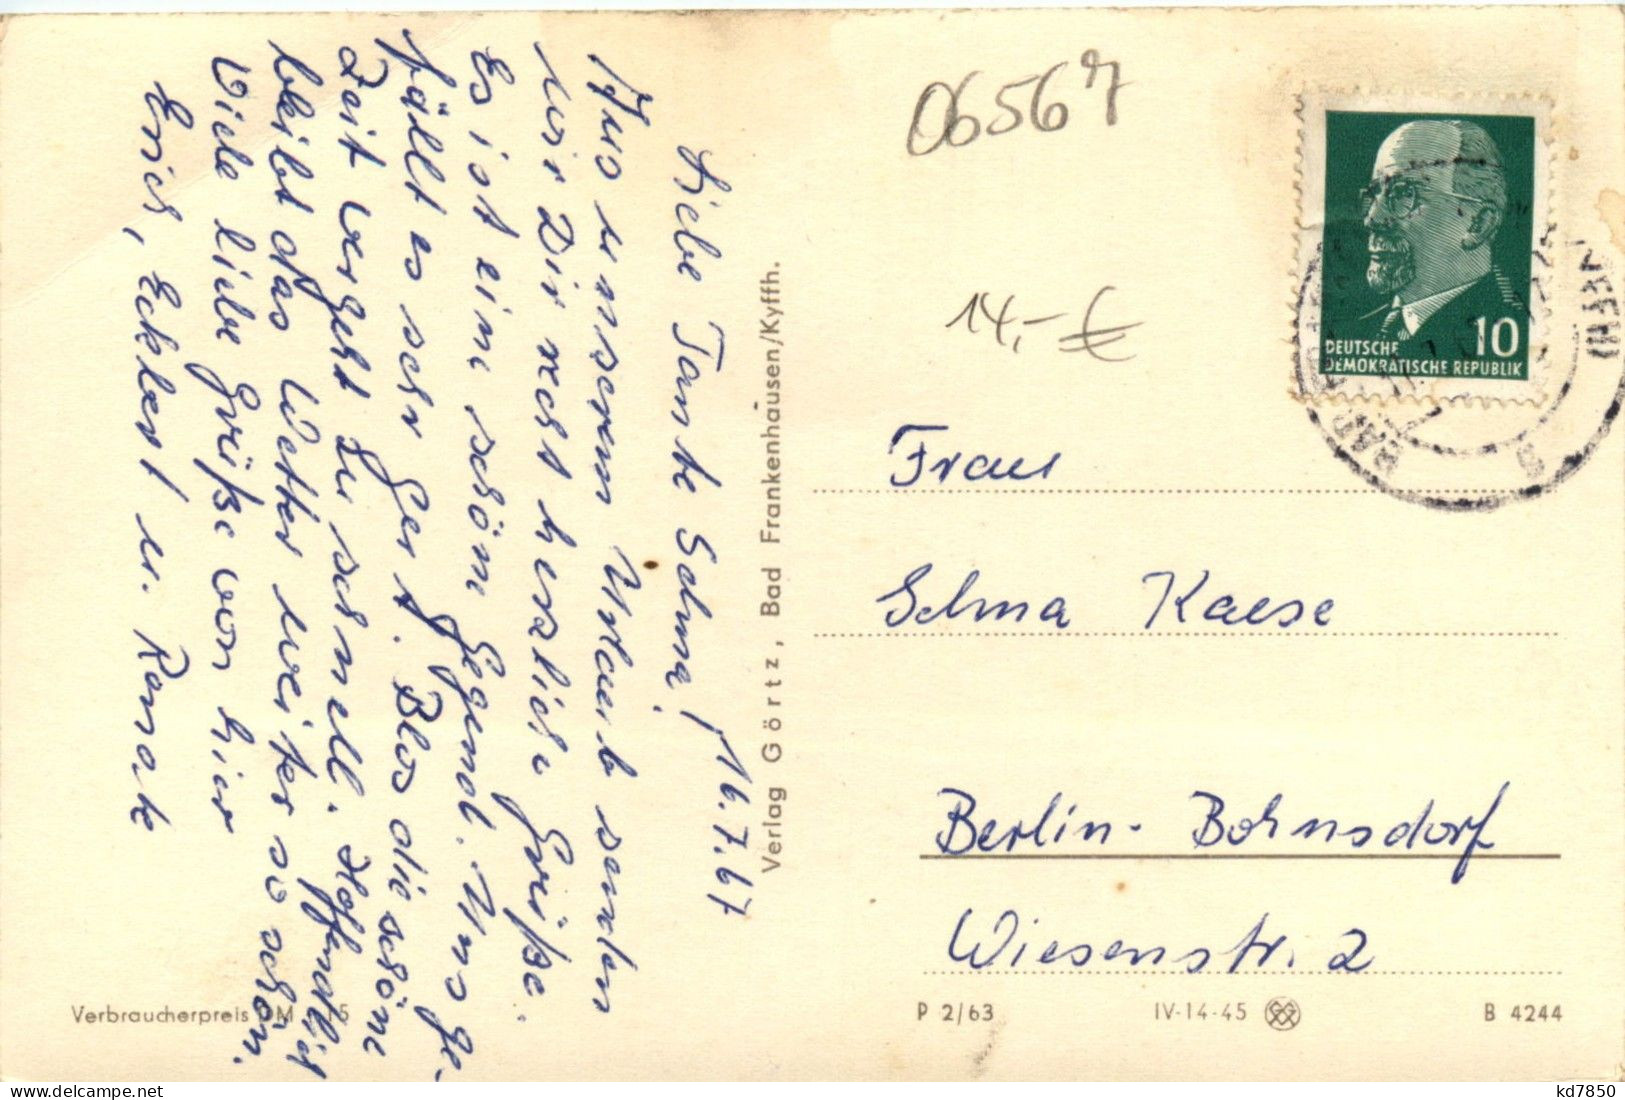 Liebe Tante Selma! 16.7.67
Aus unserem Urlaub senden
wir Dir recht herzliche Grüße.
Es ist eine schön Gegend. Uns ge-
fällt es sehr gut. Blos die schöne
Zeit vergeht zu schnell. Hoffendlich
bleibt das Wetter weiter so schön.
Viele liebe Grüße von hier
Erich, Eckbert u. Renate
Verlag Görtz, Bad Frankenhausen/Kyffh.
06567
14,- €
DEUTSCHE 10
DEMOKRATISCHE REPUBLIK
Frau
Selma Kaese
Berlin-Bohnsdorf
Wiesenstr. 2
Verbraucherpreis DM
P 2/63 IV-14-45 B 4244
kd7850